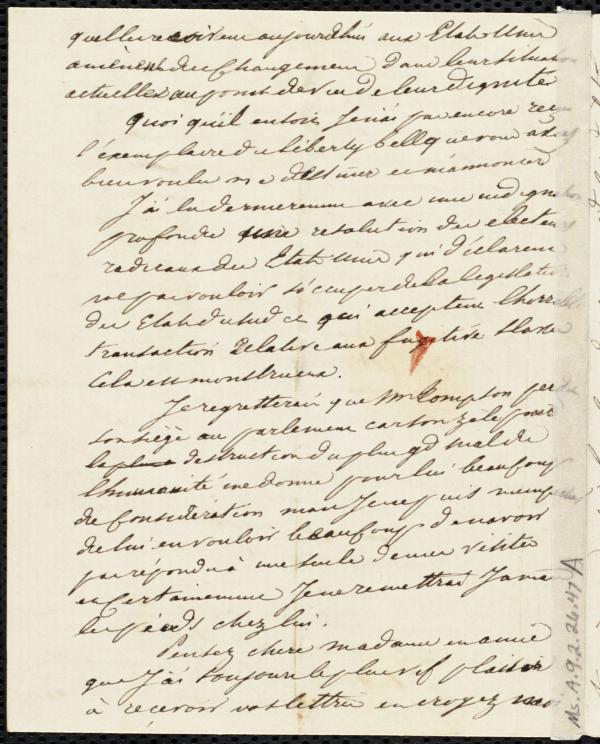 qu'elles recoivent aujourdhui aux Etats Unis
amènent des Changement dans leur situation
actuelles au point de vue de leur dignité
Quoi qu'il en soit Je n'ai pas encore reçu
l'exemplaire du Liberty bell que vous avez
bien voulu me destiner et m'annoncer
J'ai lu dernierement avec une indignation
profonde une resolution des electeurs
radicaux des Etats Unis qui déclarent
ne pas vouloir s'occuper de la legislation
des Etats du Sud et qui acceptent l'horrible
transaction Relative aux fugitive Slave
Cela est monstrueux.
Je regretterais que Mr Thompson perde
son siège au parlement car son zèle pour
la destruction du plus gd mal de
l'humanité me donne pour lui beaucoup
de Consideration mais Je ne puis m'empecher
de lui en vouloir beaucoup de n'avoir
pas répondu à une seule de mes visites
et Certainement Je ne remettrai Jamais
les pieds chez lui.
Pensez chere madame et amie
que J'ai toujours le plus vif plaisir
à recevoir vos lettres et croyez moi
Ms. A. 9. 2. 26. 47 A